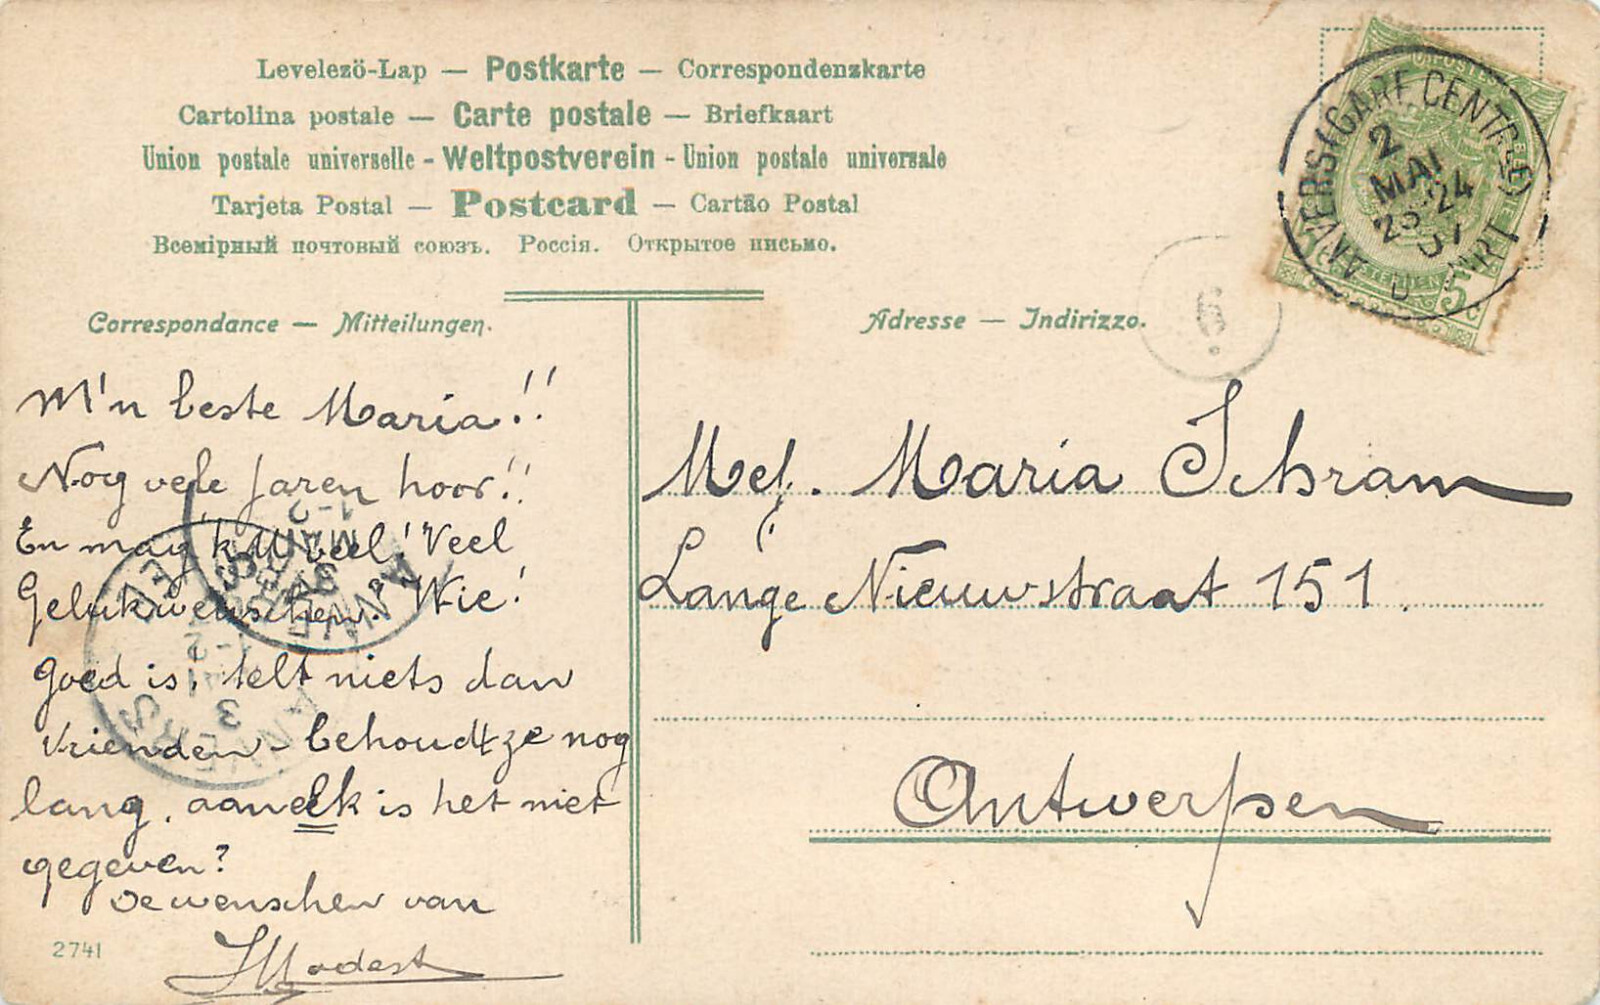 Levelező-Lap — Postkarte — Correspondenzkarte
Cartolina postale — Carte postale — Briefkaart
Union postale universelle - Weltpostverein - Union postale universale
Tarjeta Postal — Postcard — Cartão Postal
Всемірный почтовый союзъ. Россія. Открытое письмо.
Correspondance — Mitteilungen.
M'n beste Maria!!
Nog vele jaren hoor!!
En mag 'k U veel! Veel
Gelukwenschen? Wie!
goed is, telt niets dan
vrienden - behoudt ze nog
lang, aan elk is het niet
gegeven?
De wenschen van
Modest
2741
Adresse — Indirizzo.
Mej. Maria Schram
Lange Nieuwstraat 151.
Antwerpen
ANVERS (GARE CENTRALE)
2
MAI
23-24
07
DÉPART
5 c
6
ANVERS
3
1-2
ANVERS
3
MAI
1-2